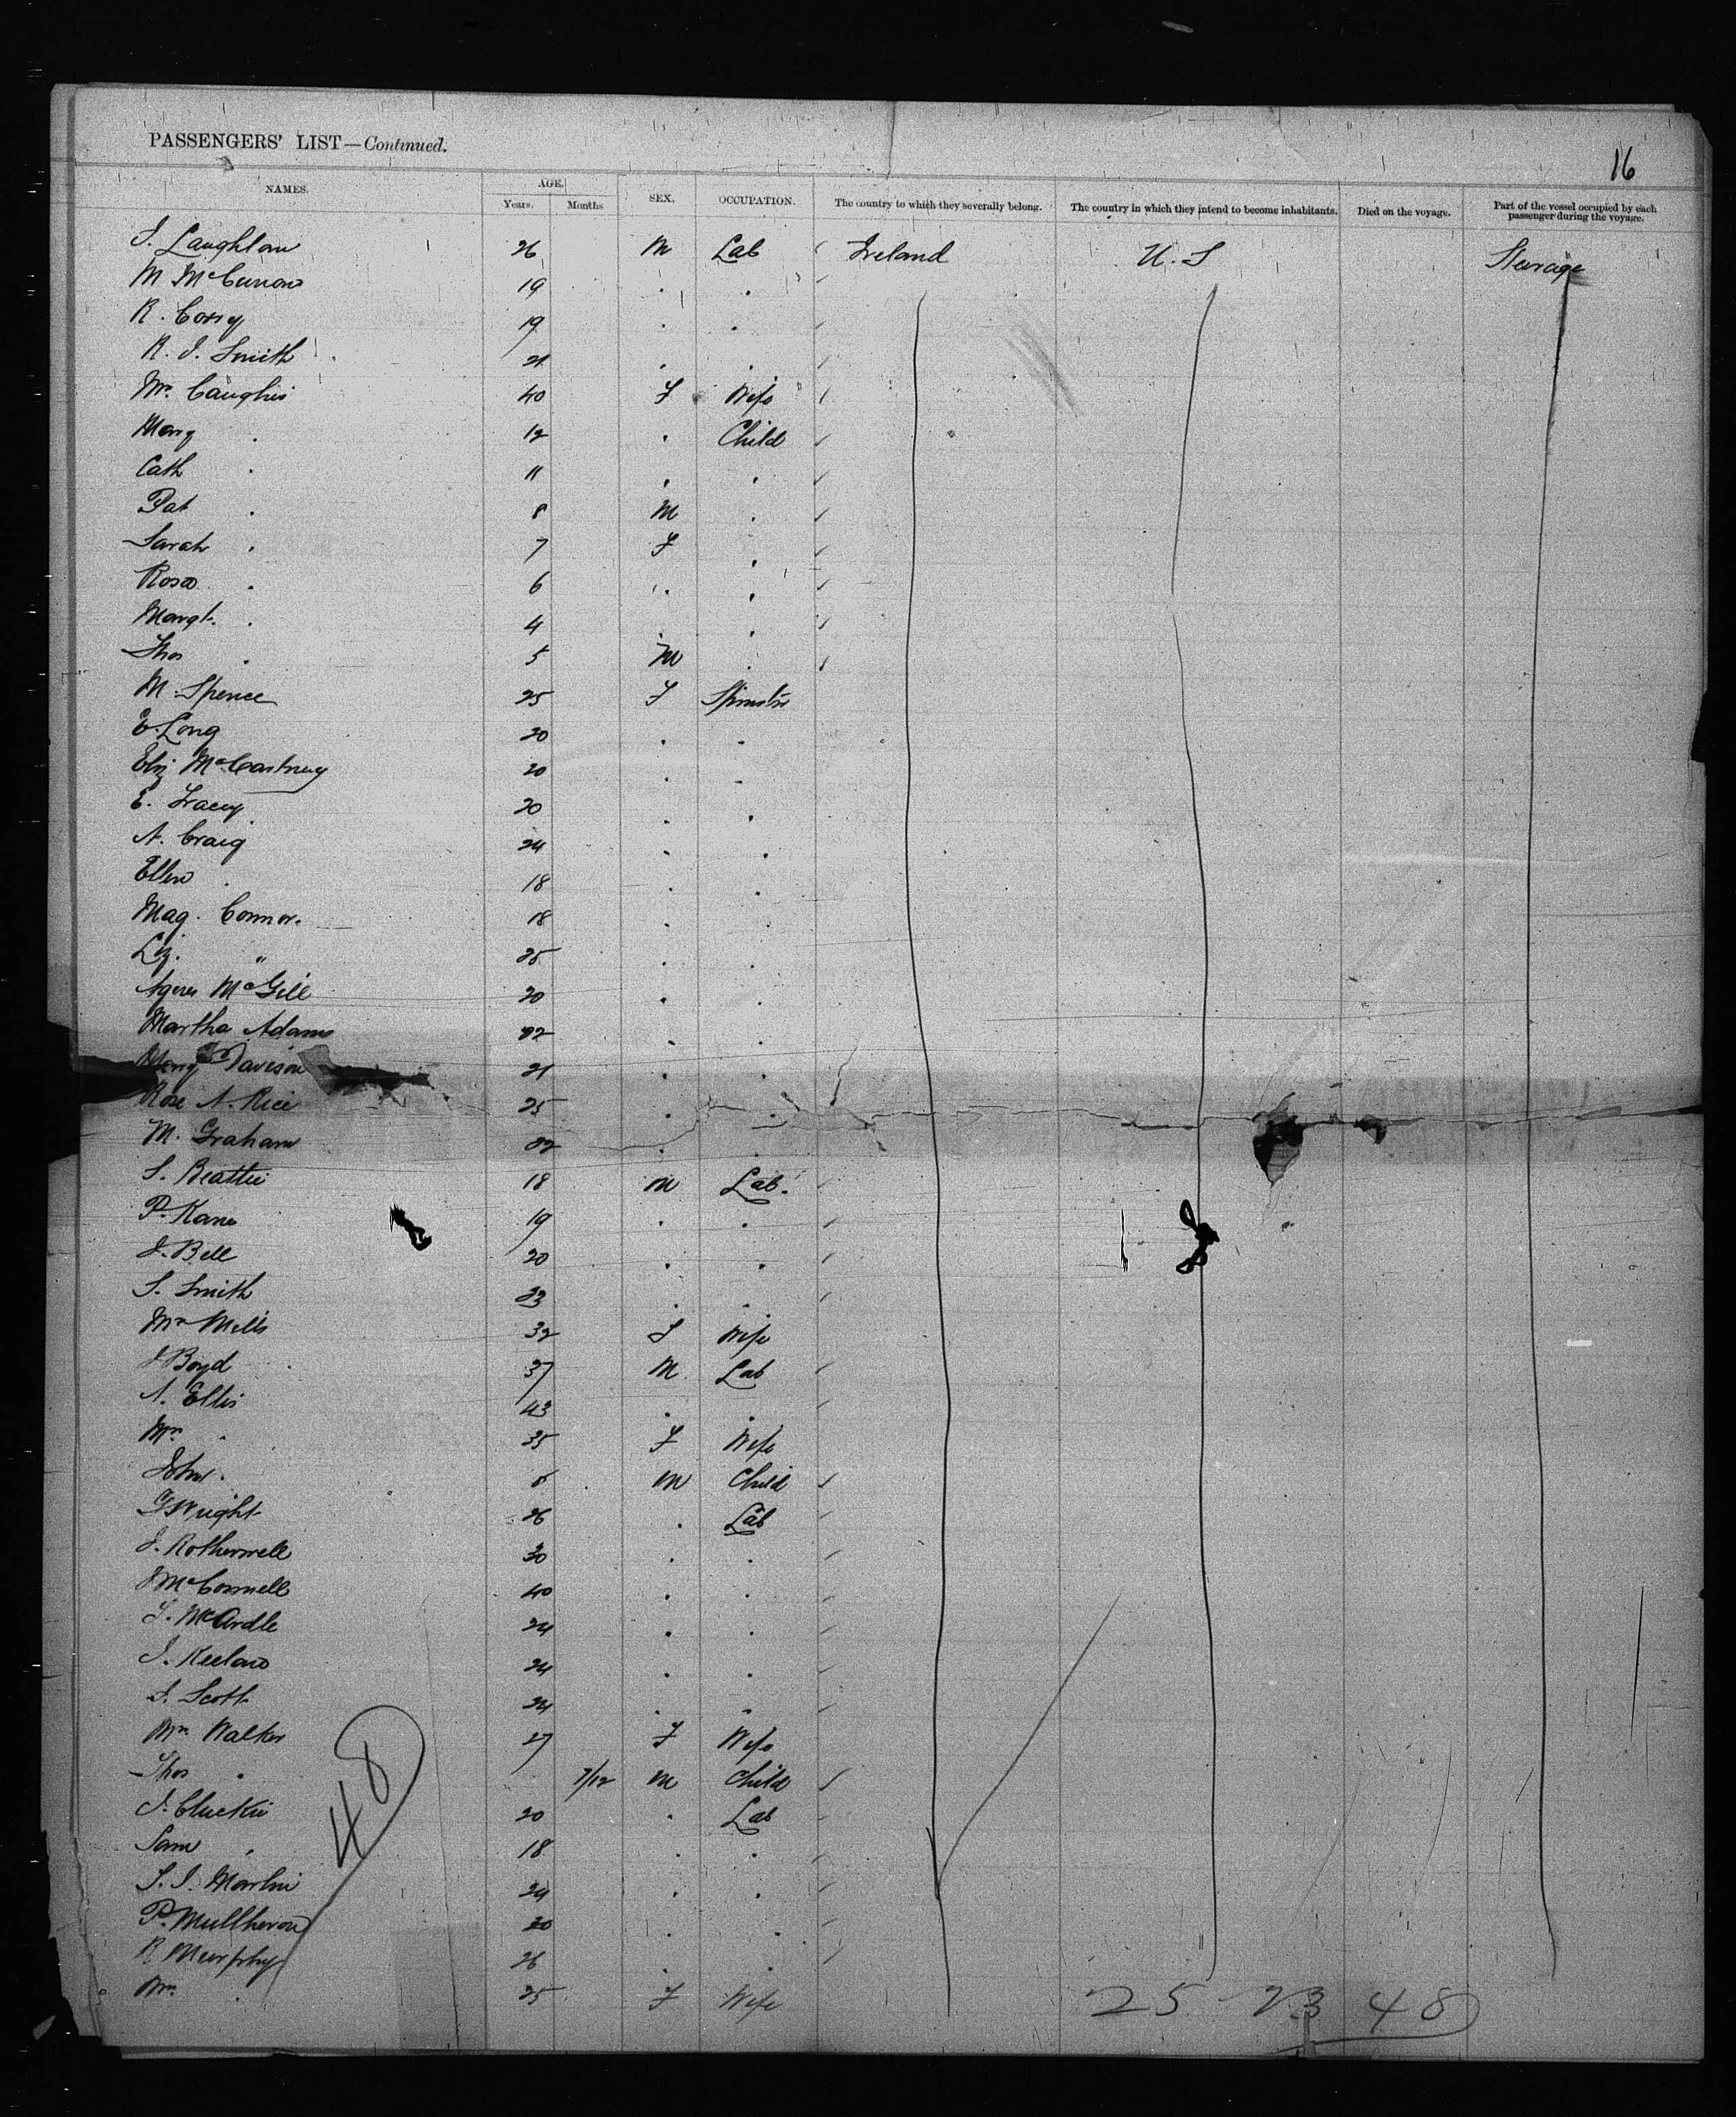 PASSENGERS' LIST—Continued.
16
NAMES. AGE. Years. Months SEX. OCCUPATION. The country to which they severally belong. The country in which they intend to become inhabitants. Died on the voyage. Part of the vessel occupied by each passenger during the voyage.
Laughlan 26 M Lab Ireland U.S Steerage
M 19 . .
R. 19 . .
R. J. Smith 21 . .
Mrs. Caughis 40 F Wife
Mary . 12 . Child
Cath . 11 . .
Pat . 8 M .
Sarah . 7 F .
Rosa . 6 . .
Margt. . 4 . .
Thos . 5 M .
M. Spence 25 F
E. Long 20 . .
Eliz McCartney 20 . .
E. Tracey 20 . .
A. Craig 24 . .
Ellen . 18 . .
Mag. Connor. 18 .
Liz. " 25 . .
Agnes McGill 20 . .
Martha Adams . .
Mary Davison 21 . .
Rose A. Rice 25 . .
M. Graham . .
S. Beattie 18 M Lab.
P. Kane 19 . .
J. Bell 20 . .
S. Smith 23 . .
Mrs Mills 32 F Wife
J Boyd 37 M Lab
A. Ellis 43 . .
Mrs . 35 F Wife
John . M Child
G Wright 26 . Lab
J. Rotherwell 30 . .
J McConnell 40 . .
McArdle 24 . .
J. 24 . .
S. Scott 24 . .
Mrs. Walker 27 F Wife
Thos . 7/12 M Child
J. Cluckie 20 . Lab
Sam . 18 . .
S. J. Martin 24 . .
P. Mullheron 20 . .
R Murphy 26 . .
Mrs. . 25 F Wife
48
25 23 48